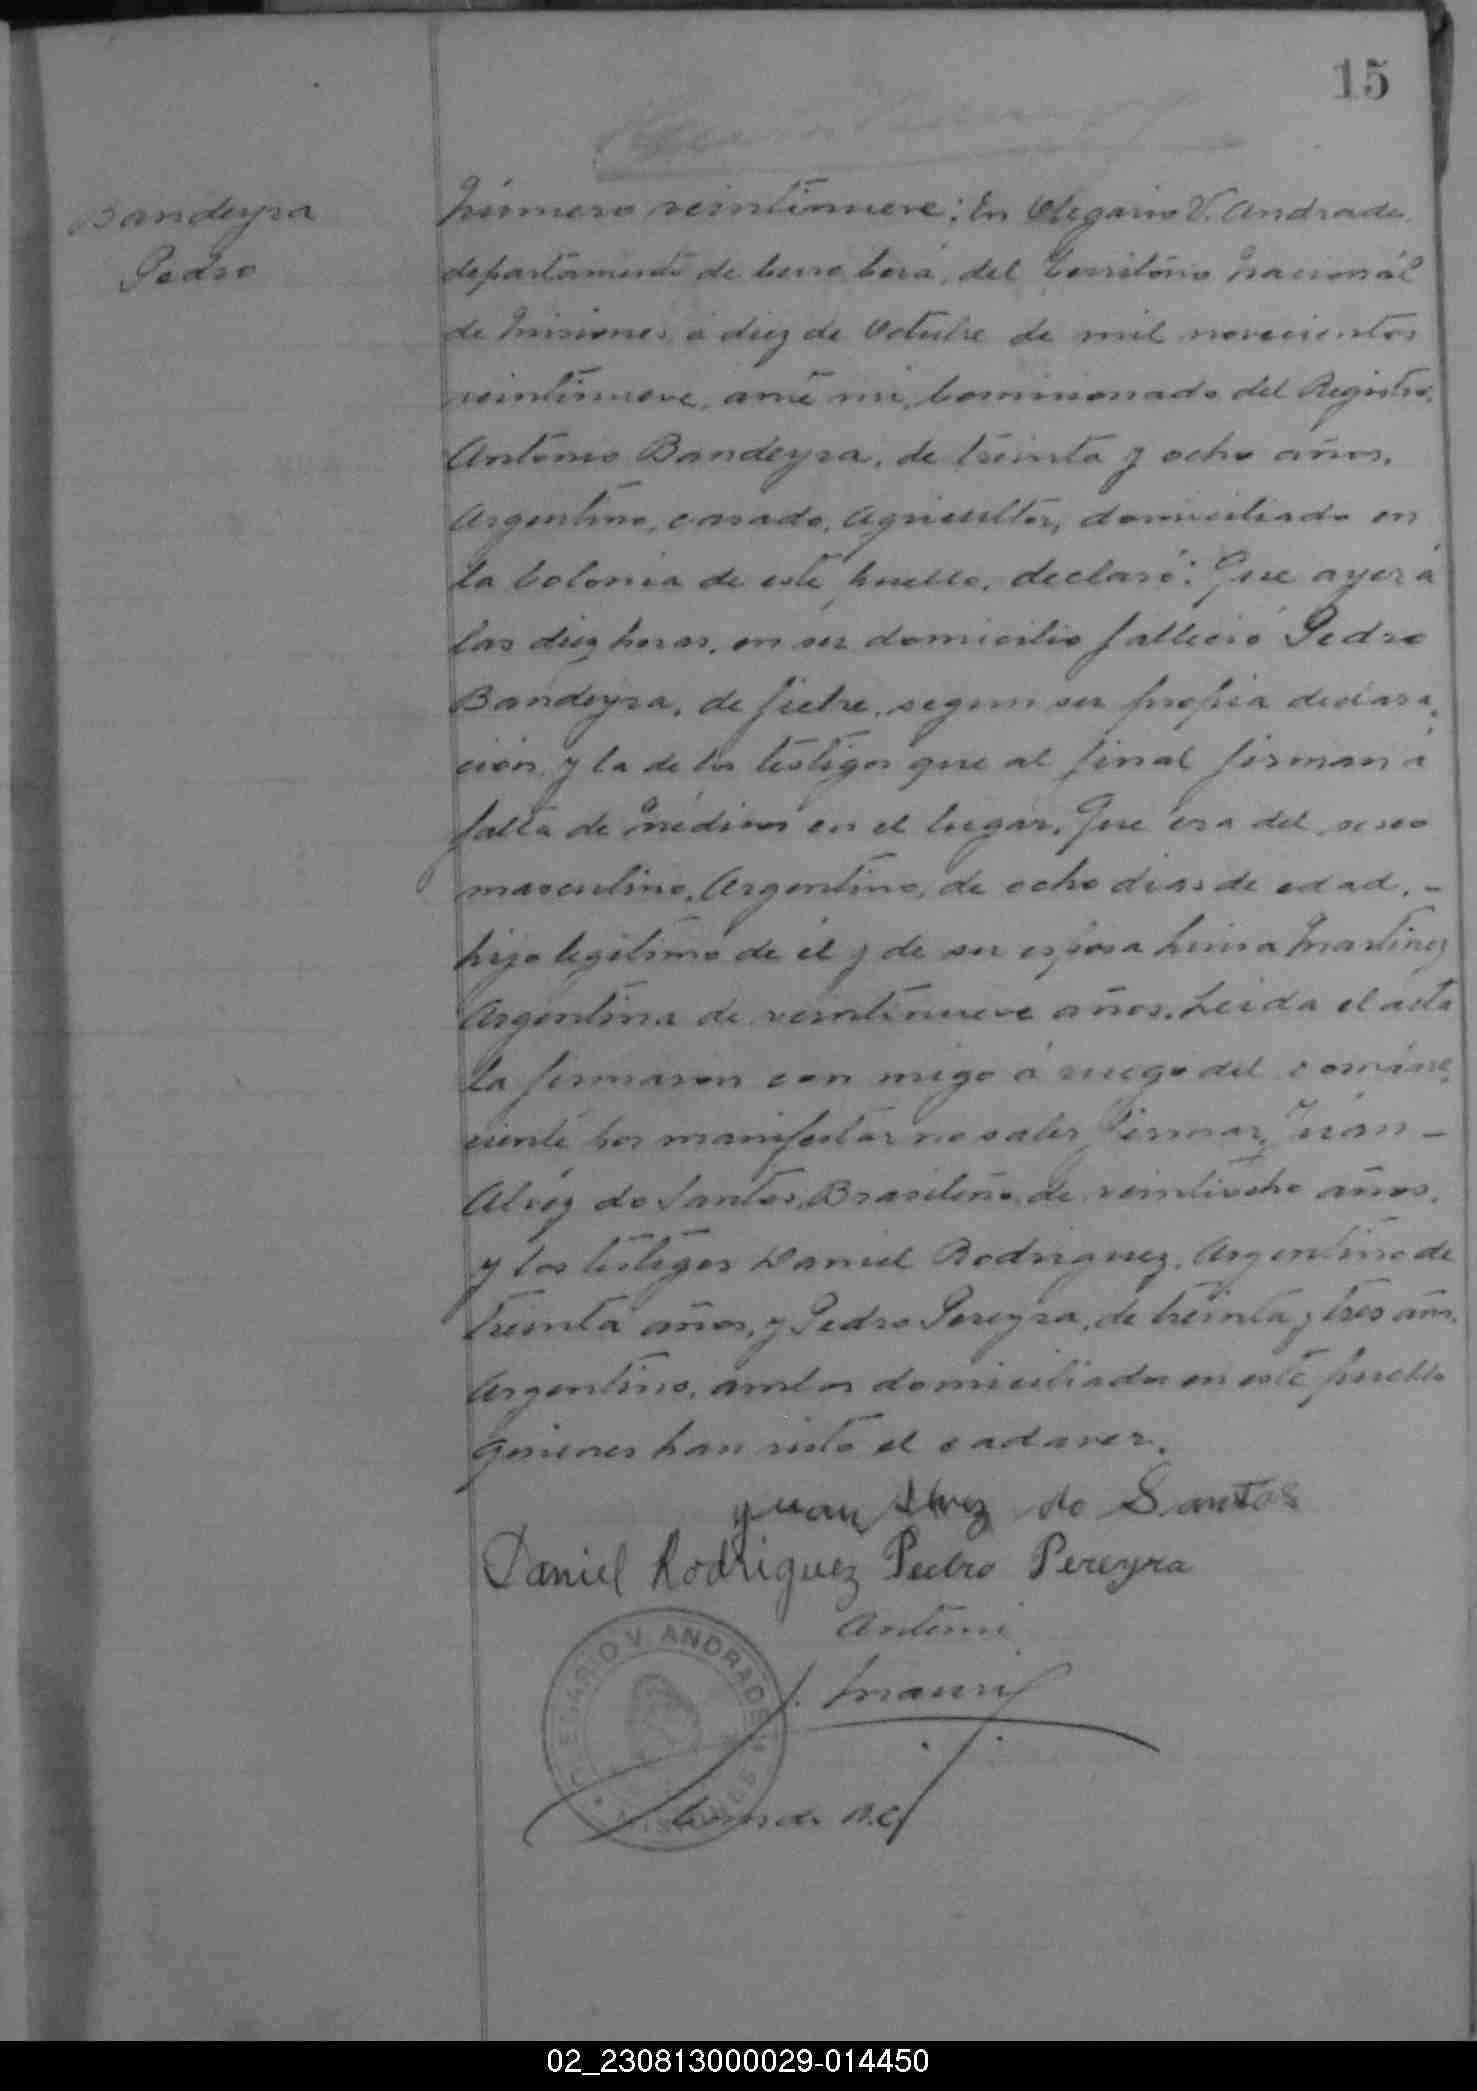 15
Bandeyra
Pedro
Número veintinueve: En Olegario V. Andrade,
departamento de Cerro Corá, del Territorio Nacionál
de Misiones, á diez de Octubre de mil novecientos
veintinueve, ante mi, Comisionado del Registro,
Antonio Bandeyra, de treinta y ocho años,
Argentino, casado, Agricultor, domiciliado en
la Colonia de este pueblo, declaró: Que ayer á
las diez horas, en su domicilio falleció Pedro
Bandeyra, de fiebre, segun su propia declara-
ción, y la de los testigos que al final firman á
falta de médicos en el lugar, Que era del sexo
masculino, Argentino, de ocho dias de edad, -
hijo legitimo de él y de su esposa Luisa Martinez
Argentina de veintinueve años. Leida el acta
la firmaron con migo á ruego del compare-
ciente por manifestar no saber firmar, Juán -
Alvez do Santos, Brasileño, de veintiocho años,
y los testigos Daniel Rodriguez, Argentino de
treinta años, y Pedro Pereyra, de treinta y tres años,
Argentino, ambos domiciliados en este pueblo
quienes han visto el cadaver.
Juan Alvez do Santos
Daniel Rodriguez Pedro Pereyra
OLEGARIO V. ANDRADE
MISIONES
02_230813000029-014450